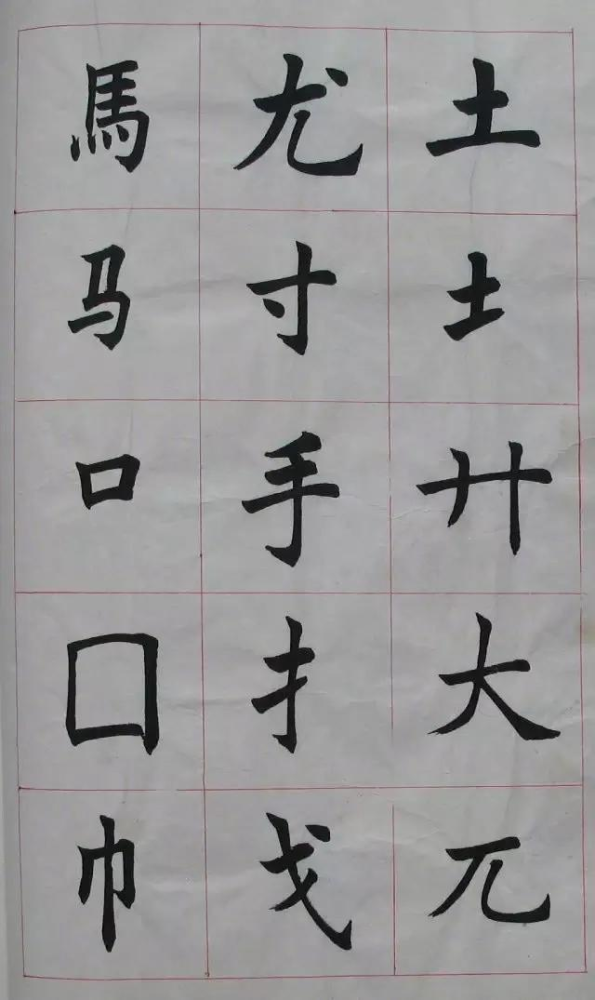 土土廾大兀
尤寸手扌戈
馬马口囗巾